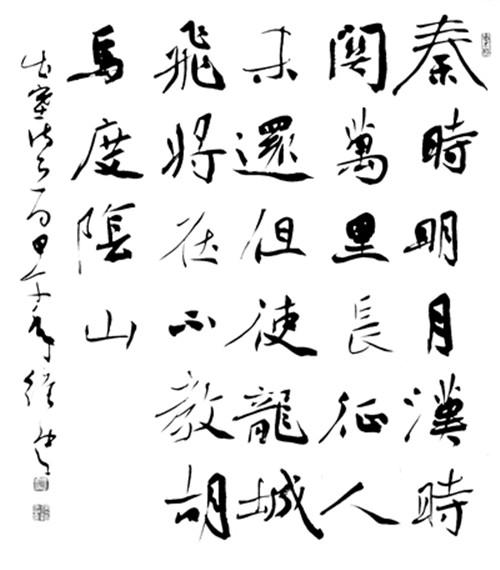 秦時明月漢時
関萬里長征人
未還但使龍城
飛将在不教胡
馬度陰山
出塞詩一首甲午年